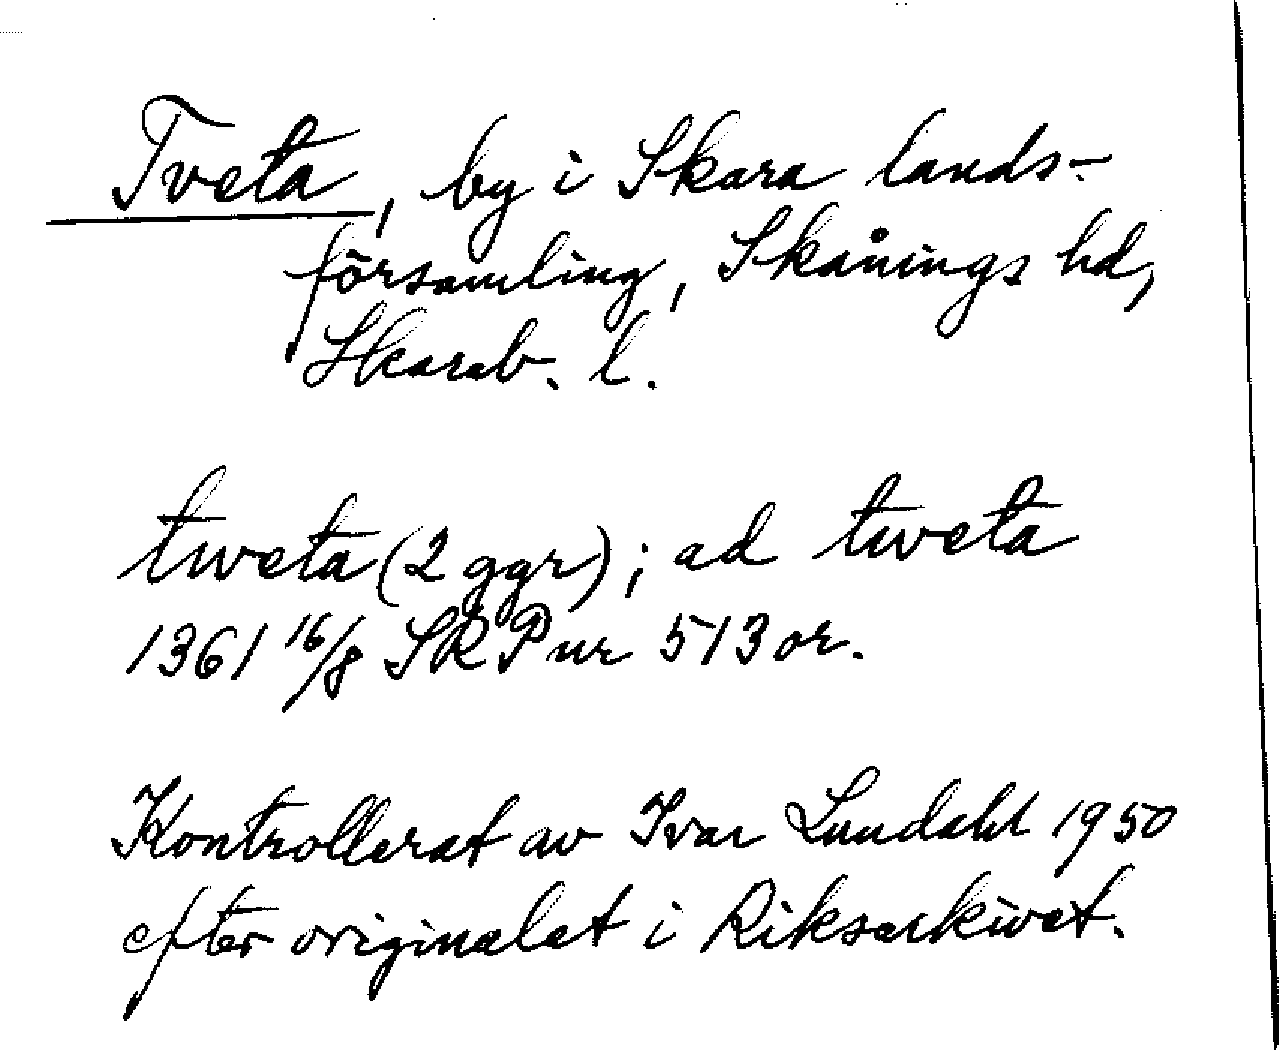 Tveta, by i Skara lands-
församling, Skånings hd,
Skarab. l.
tweta (2 ggr); ad tweta
1361 16/8 SRP nr 513 or.
Kontrollerat av Ivar Lundahl 1950
efter originalet i Riksarkivet.